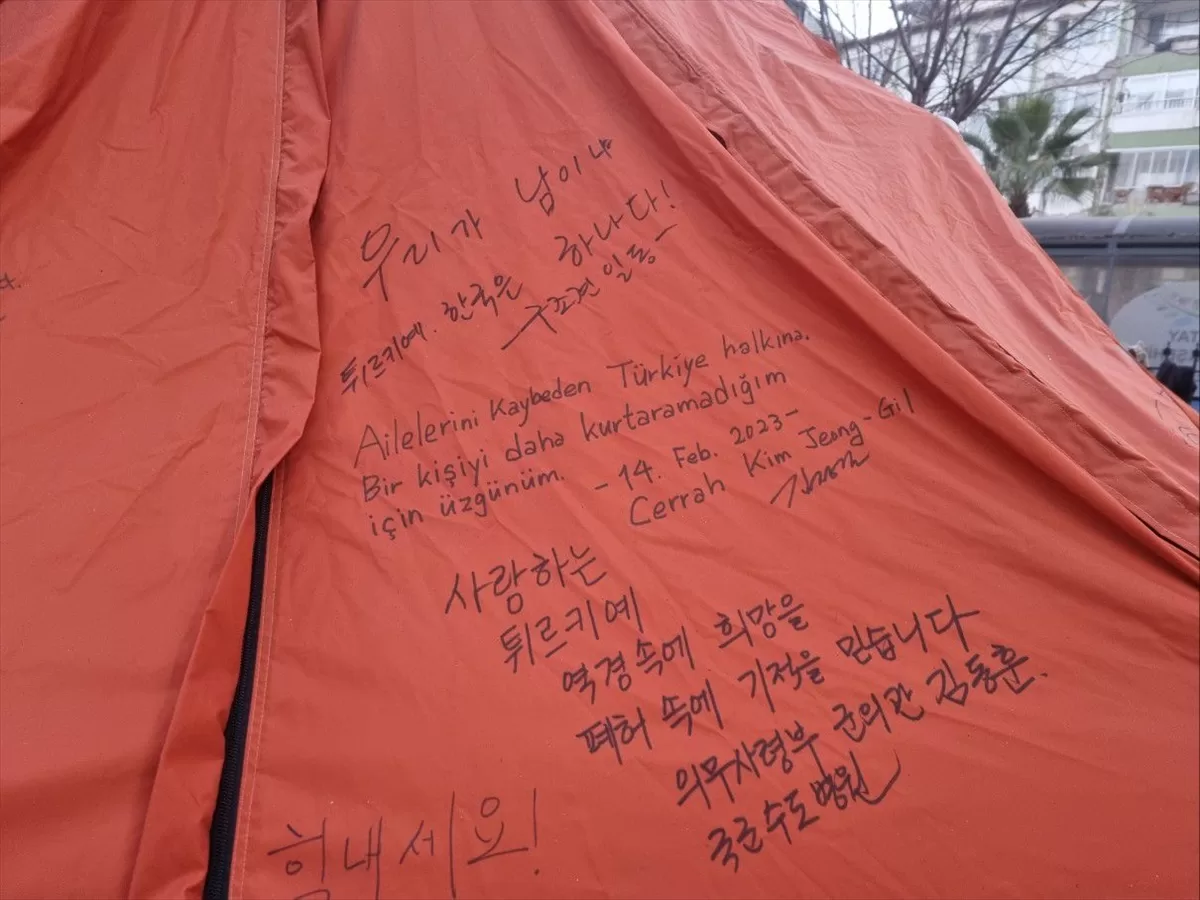 우리가 남이냐
튀르키예. 한국은 하나다!
구조견 일동—
Ailelerini Kaybeden Türkiye halkına.
Bir kişiyi daha kurtaramadığım
için üzgünüm. - 14. Feb. 2023-
Cerrah Kim Jeong-Gil
사랑하는
튀르키예
역경속에 희망을
폐허 속에 기적을 믿습니다
의무사령부 군의관 김동훈.
국군수도병원
힘내세요!
TAY